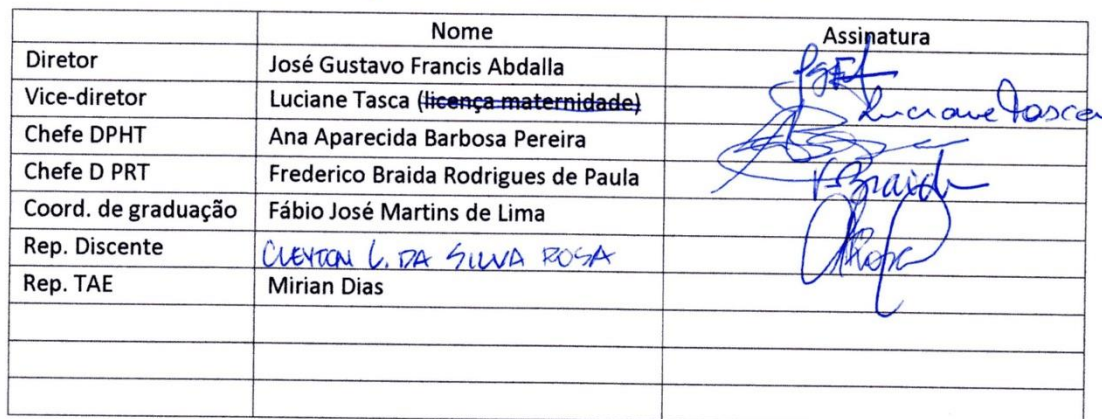 Nome Assinatura
Diretor José Gustavo Francis Abdalla
Vice-diretor Luciane Tasca (licença maternidade) Luciane Tasca
Chefe DPHT Ana Aparecida Barbosa Pereira
Chefe D PRT Frederico Braida Rodrigues de Paula F. Braida
Coord. de graduação Fábio José Martins de Lima
Rep. Discente CLEYTON L. DA SILVA ROSA
Rep. TAE Mirian Dias